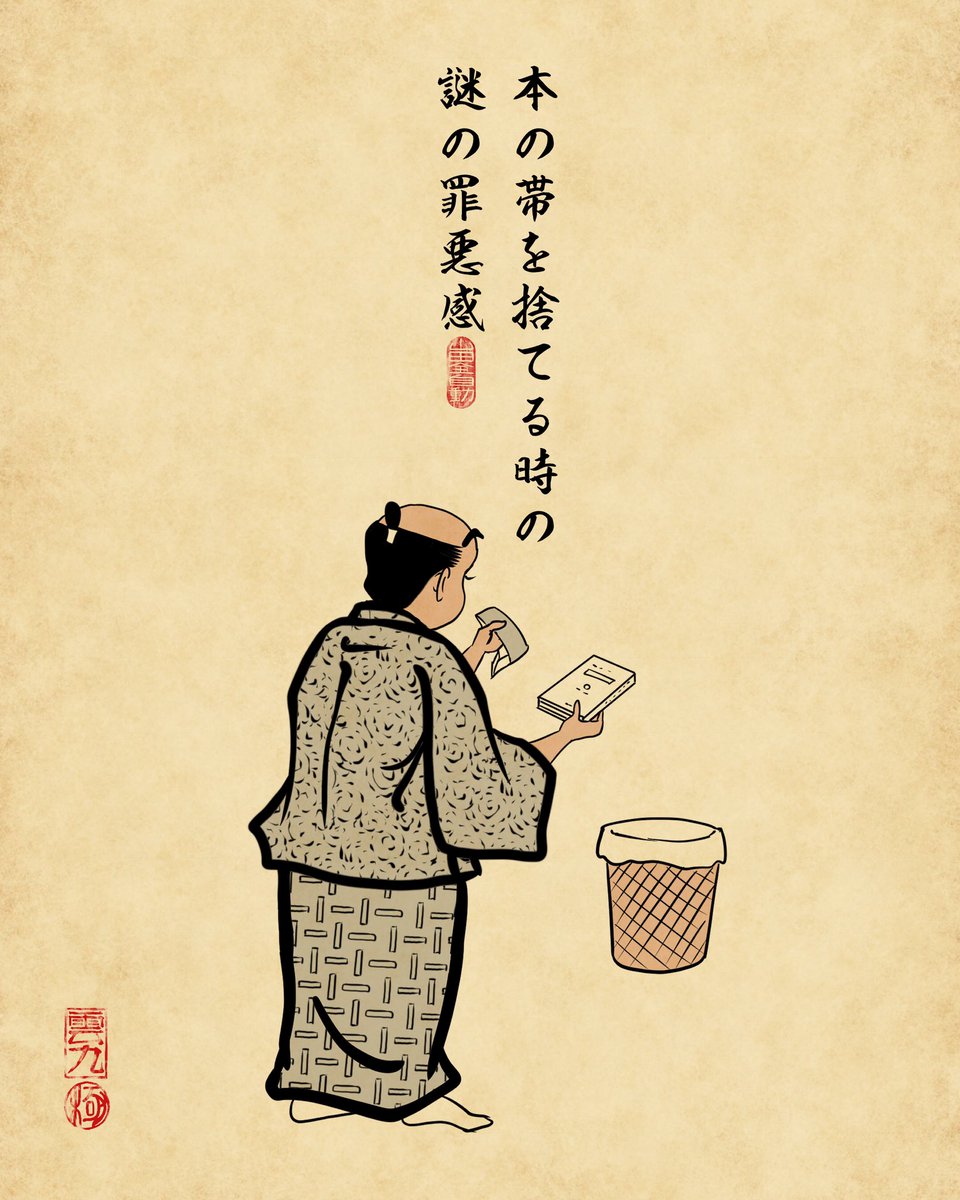 本の帯を捨てる時の
謎の罪悪感